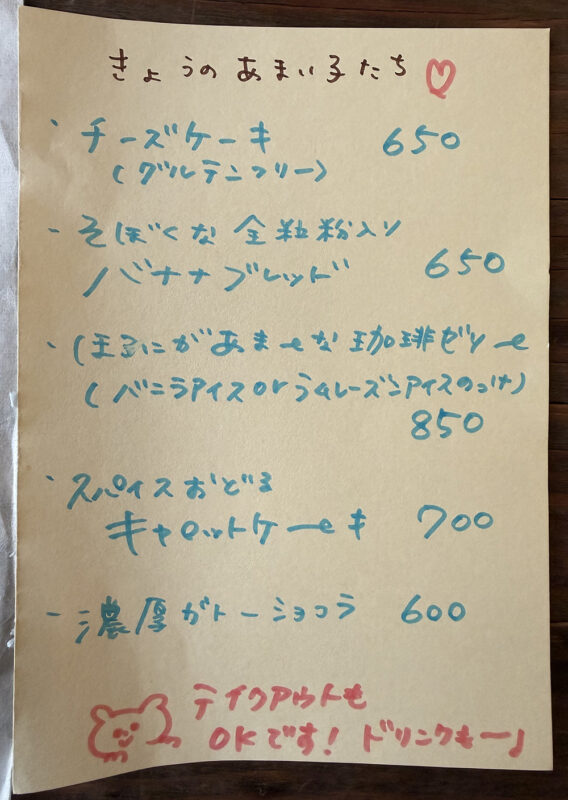 きょうのあまい子たち♡
・チーズケーキ 650
(グルテンフリー)
・そぼくな全粒粉入り
バナナブレッド 650
・ほろにがあまーな珈琲ゼリー
(バニラアイスorラムレーズンアイスのっけ)
850
・スパイスおどる
キャロットケーキ 700
・濃厚ガトーショコラ 600
テイクアウトも
OKです！ ドリンクもー♩